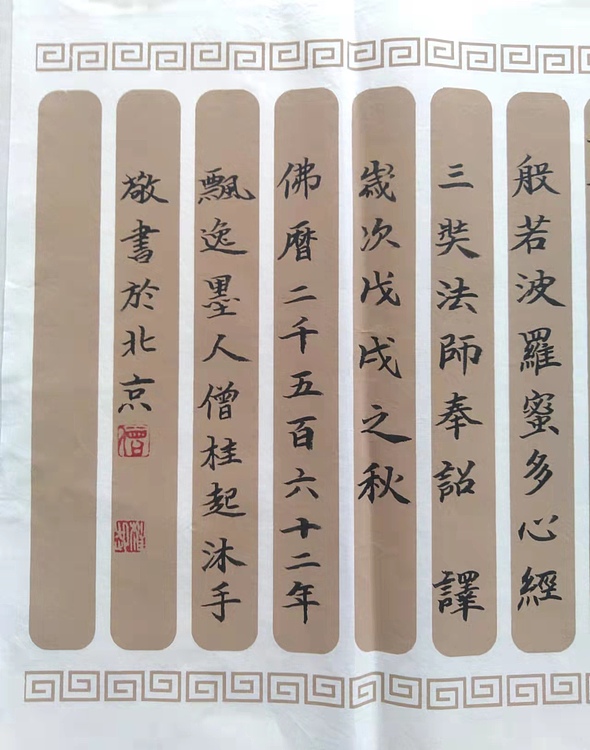 般若波羅蜜多心經
三奘法師奉詔 譯
歲次戊戌之秋
佛曆二千五百六十二年
飄逸墨人僧桂起沐手
敬書於北京